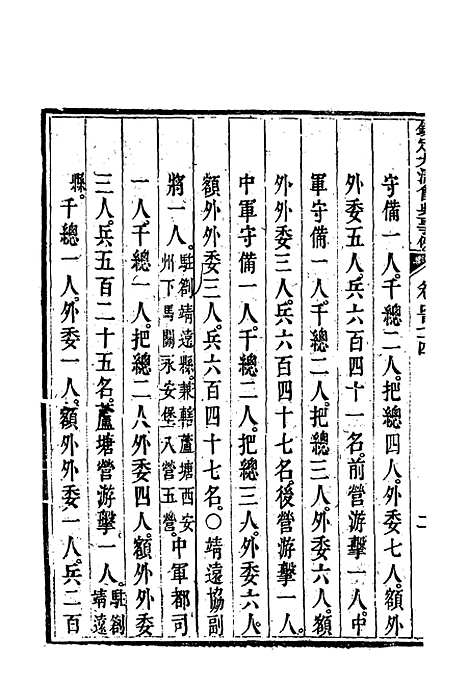 守備一人。千總二人。把總四人。外委七人。額外
外委五人。兵六百四十一名。前營游擊一人。中
軍守備一人。千總二人。把總三人。外委六人。額
外外委三人。兵六百四十七名。後營游擊一人。
中軍守備一人。千總二人。把總三人。外委六人。
額外外委三人。兵六百四十七名。○靖遠協副
將一人。駐劄靖遠縣。兼轄蘆塘西安
州下馬關永安堡八營五營。中軍都司
一人。千總一人。把總二人。外委四人。額外外委
三人。兵五百二十五名。蘆塘營游擊一人。駐劄
靖遠
縣。千總一人。外委一人。額外外委一人。兵二百